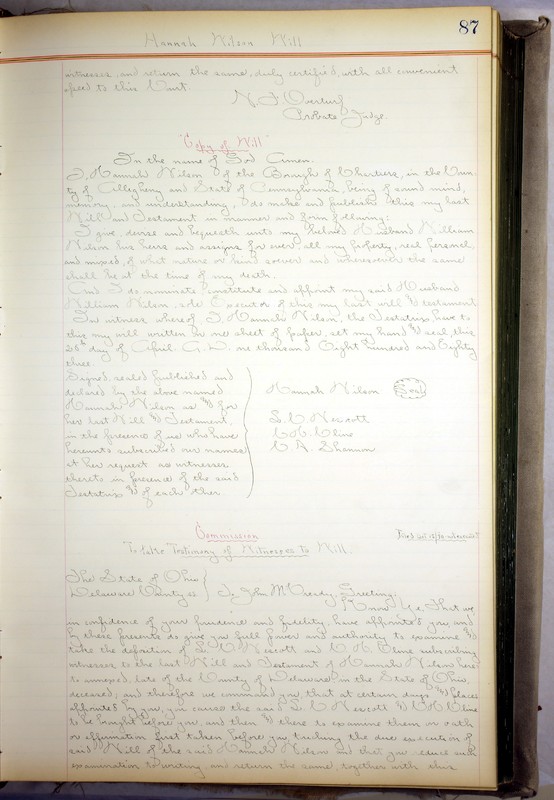 87
Hannah Wilson Will
witnesses, and return the same, duly certified, with all convenient
speed to this Court
N. F. Overturf
Probate Judge.
"Copy of Will"
In the name of God Amen.
I, Hannah Wilson of the Borough of Chartiers, in the Coun-
ty of Allegheny and State of Pennsylvania, being of sound mind,
memory, and understanding, do make and publish this my last
Will and Testament in manner and form following:
I give, devise and bequeath unto my beloved Husband William
Wilson his heirs and assigns for ever all my property, real personal,
and mixed, of what nature or kind soever and wheresoever the same
shall be at the time of my death.
And I do nominate, constitute and appoint my said Husband
William Wilson, sole Executor of this my last will & testament
In witness whereof I, Hannah Wilson, the Testatrix have to
this my will written on one sheet of paper, set my hand & seal, this
26th day of April. A. D. one thousand Eight hundred and Eighty
three.
Signed, sealed published and
declared by the above named
Hannah Wilson as & for
her last Will & Testament,
in the presence of us who have
hereunto subscribed our names
at her request as witnesses
thereto in presence of the said
Testatrix & of each other
Hannah Wilson Seal
S. C. Wescott
C. H. Cline
C. A. Shannon
Commission
To take Testimony of Witnesses to Will.
The State of Ohio
Delaware County ss To John Greeting:
Know Ye, That we
in confidence of your prudence and fidelity, have appointed you, and
by these presents do give you full power and authority to examine &
take the deposition of S. C. Wescott and C. H. Cline subscribing
witnesses to the last Will and Testament of Hannah Wilson here-
to annexed, late of the County of Delaware in the State of Ohio,
deceased; and therefore we command you, that at certain days & places
appointed by you, you cause the said S. C. Wescott & C. H. Cline
to be brought before you, and then & there to examine them on oath
or affirmation first taken before you, touching the due execution of
said Will of the said Hannah Wilson and that you reduce such
examination to writing and return the same, together with this